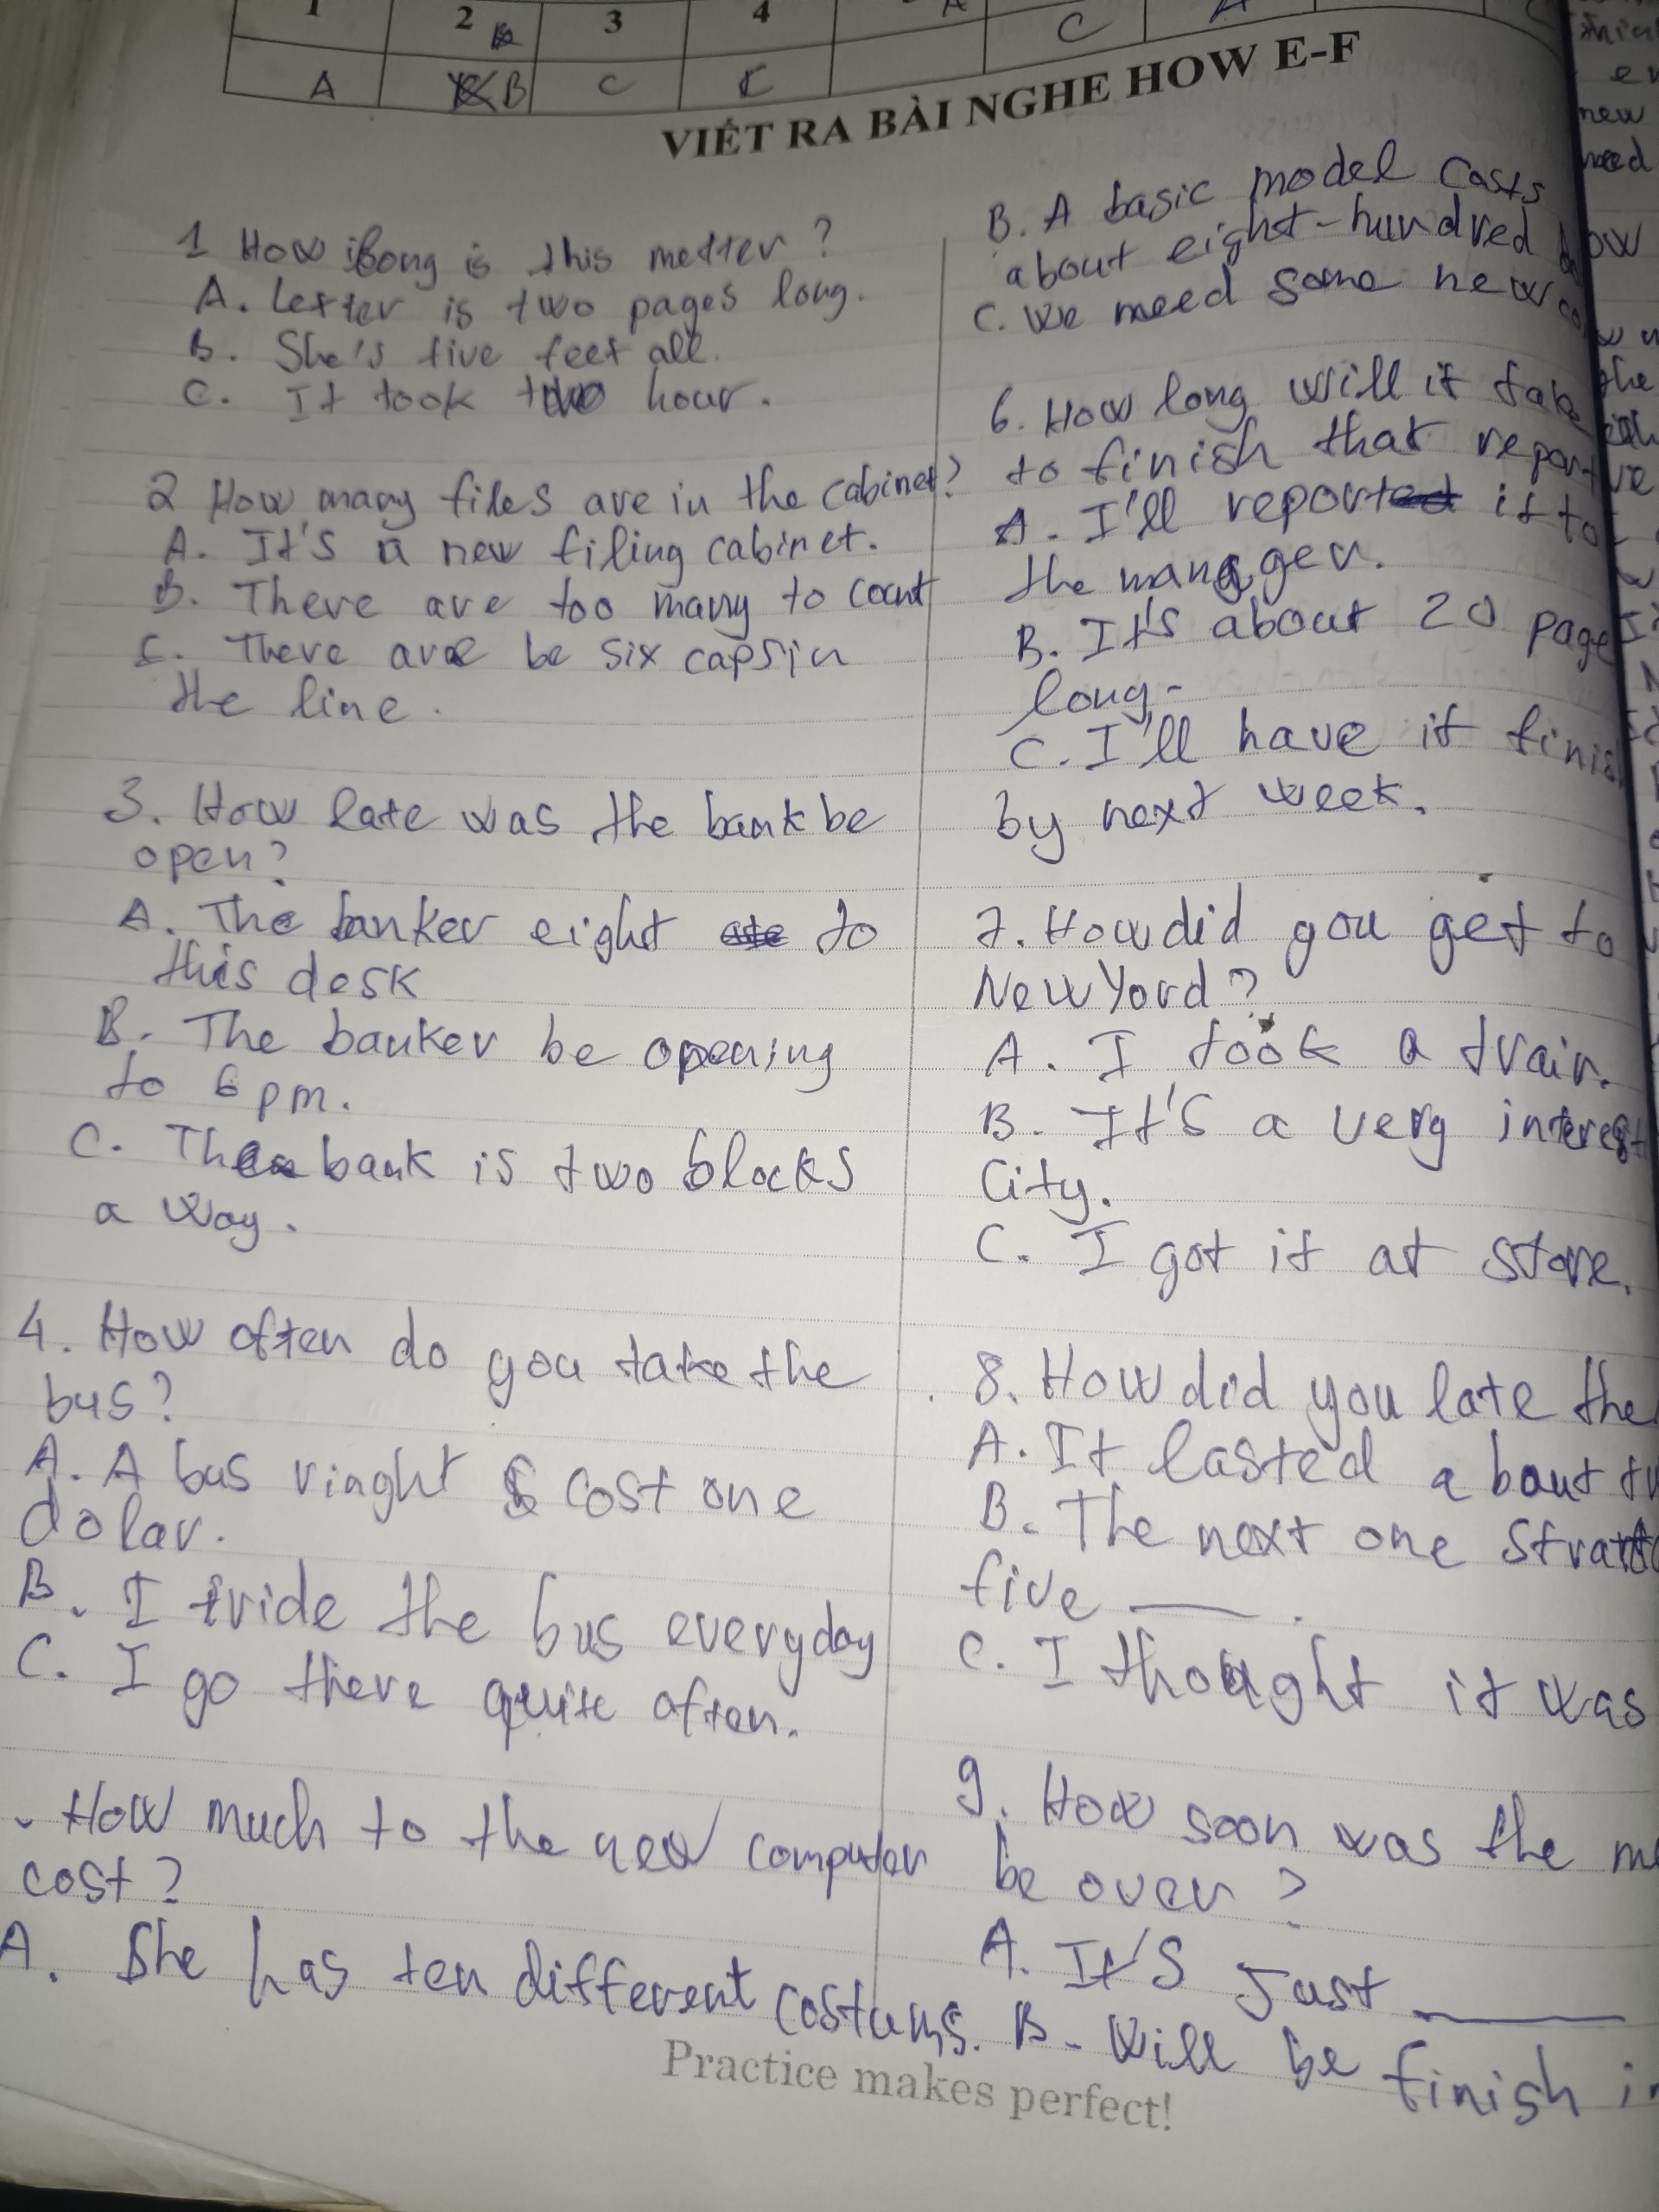 1 2 3 4 A
A B C C C A
VIẾT RA BÀI NGHE HOW E-F
1 How long is this metter?
A. Letter is two pages long.
B. She's five feet all.
C. It took two hour.
2 How many files are in the cabinet?
A. It's a new filing cabinet.
B. There are too many to count
C. There are be six capsin
the line.
3. How late was the bank be
open?
A. The banker eight to
this desk
B. The banker be opening
to 6 pm.
C. The bank is two blocks
a way.
4. How often do you take the
bus?
A. A bus ringht cost one
dolar.
B. I tride the bus everyday
C. I go there quite often.
. How much to the new computer
cost?
A. She has ten different costums.
B. A basic model costs
about eight-hundred
C. We need some new
6. How long will it take
to finish that report
A. I'll report it to
the manager.
B. It's about 20 page
long-
C. I'll have it finis
by next week.
7. How did you get to
New Yord?
A. I took a train.
B. It's a very interest
City.
C. I got it at store.
8. How did you late the
A. It lasted about
B. The next one
five ___.
C. I thought it was
9. How soon was the
be over?
A. It's Just ___
B- Will be finish
Practice makes perfect!
new
need
ow
the